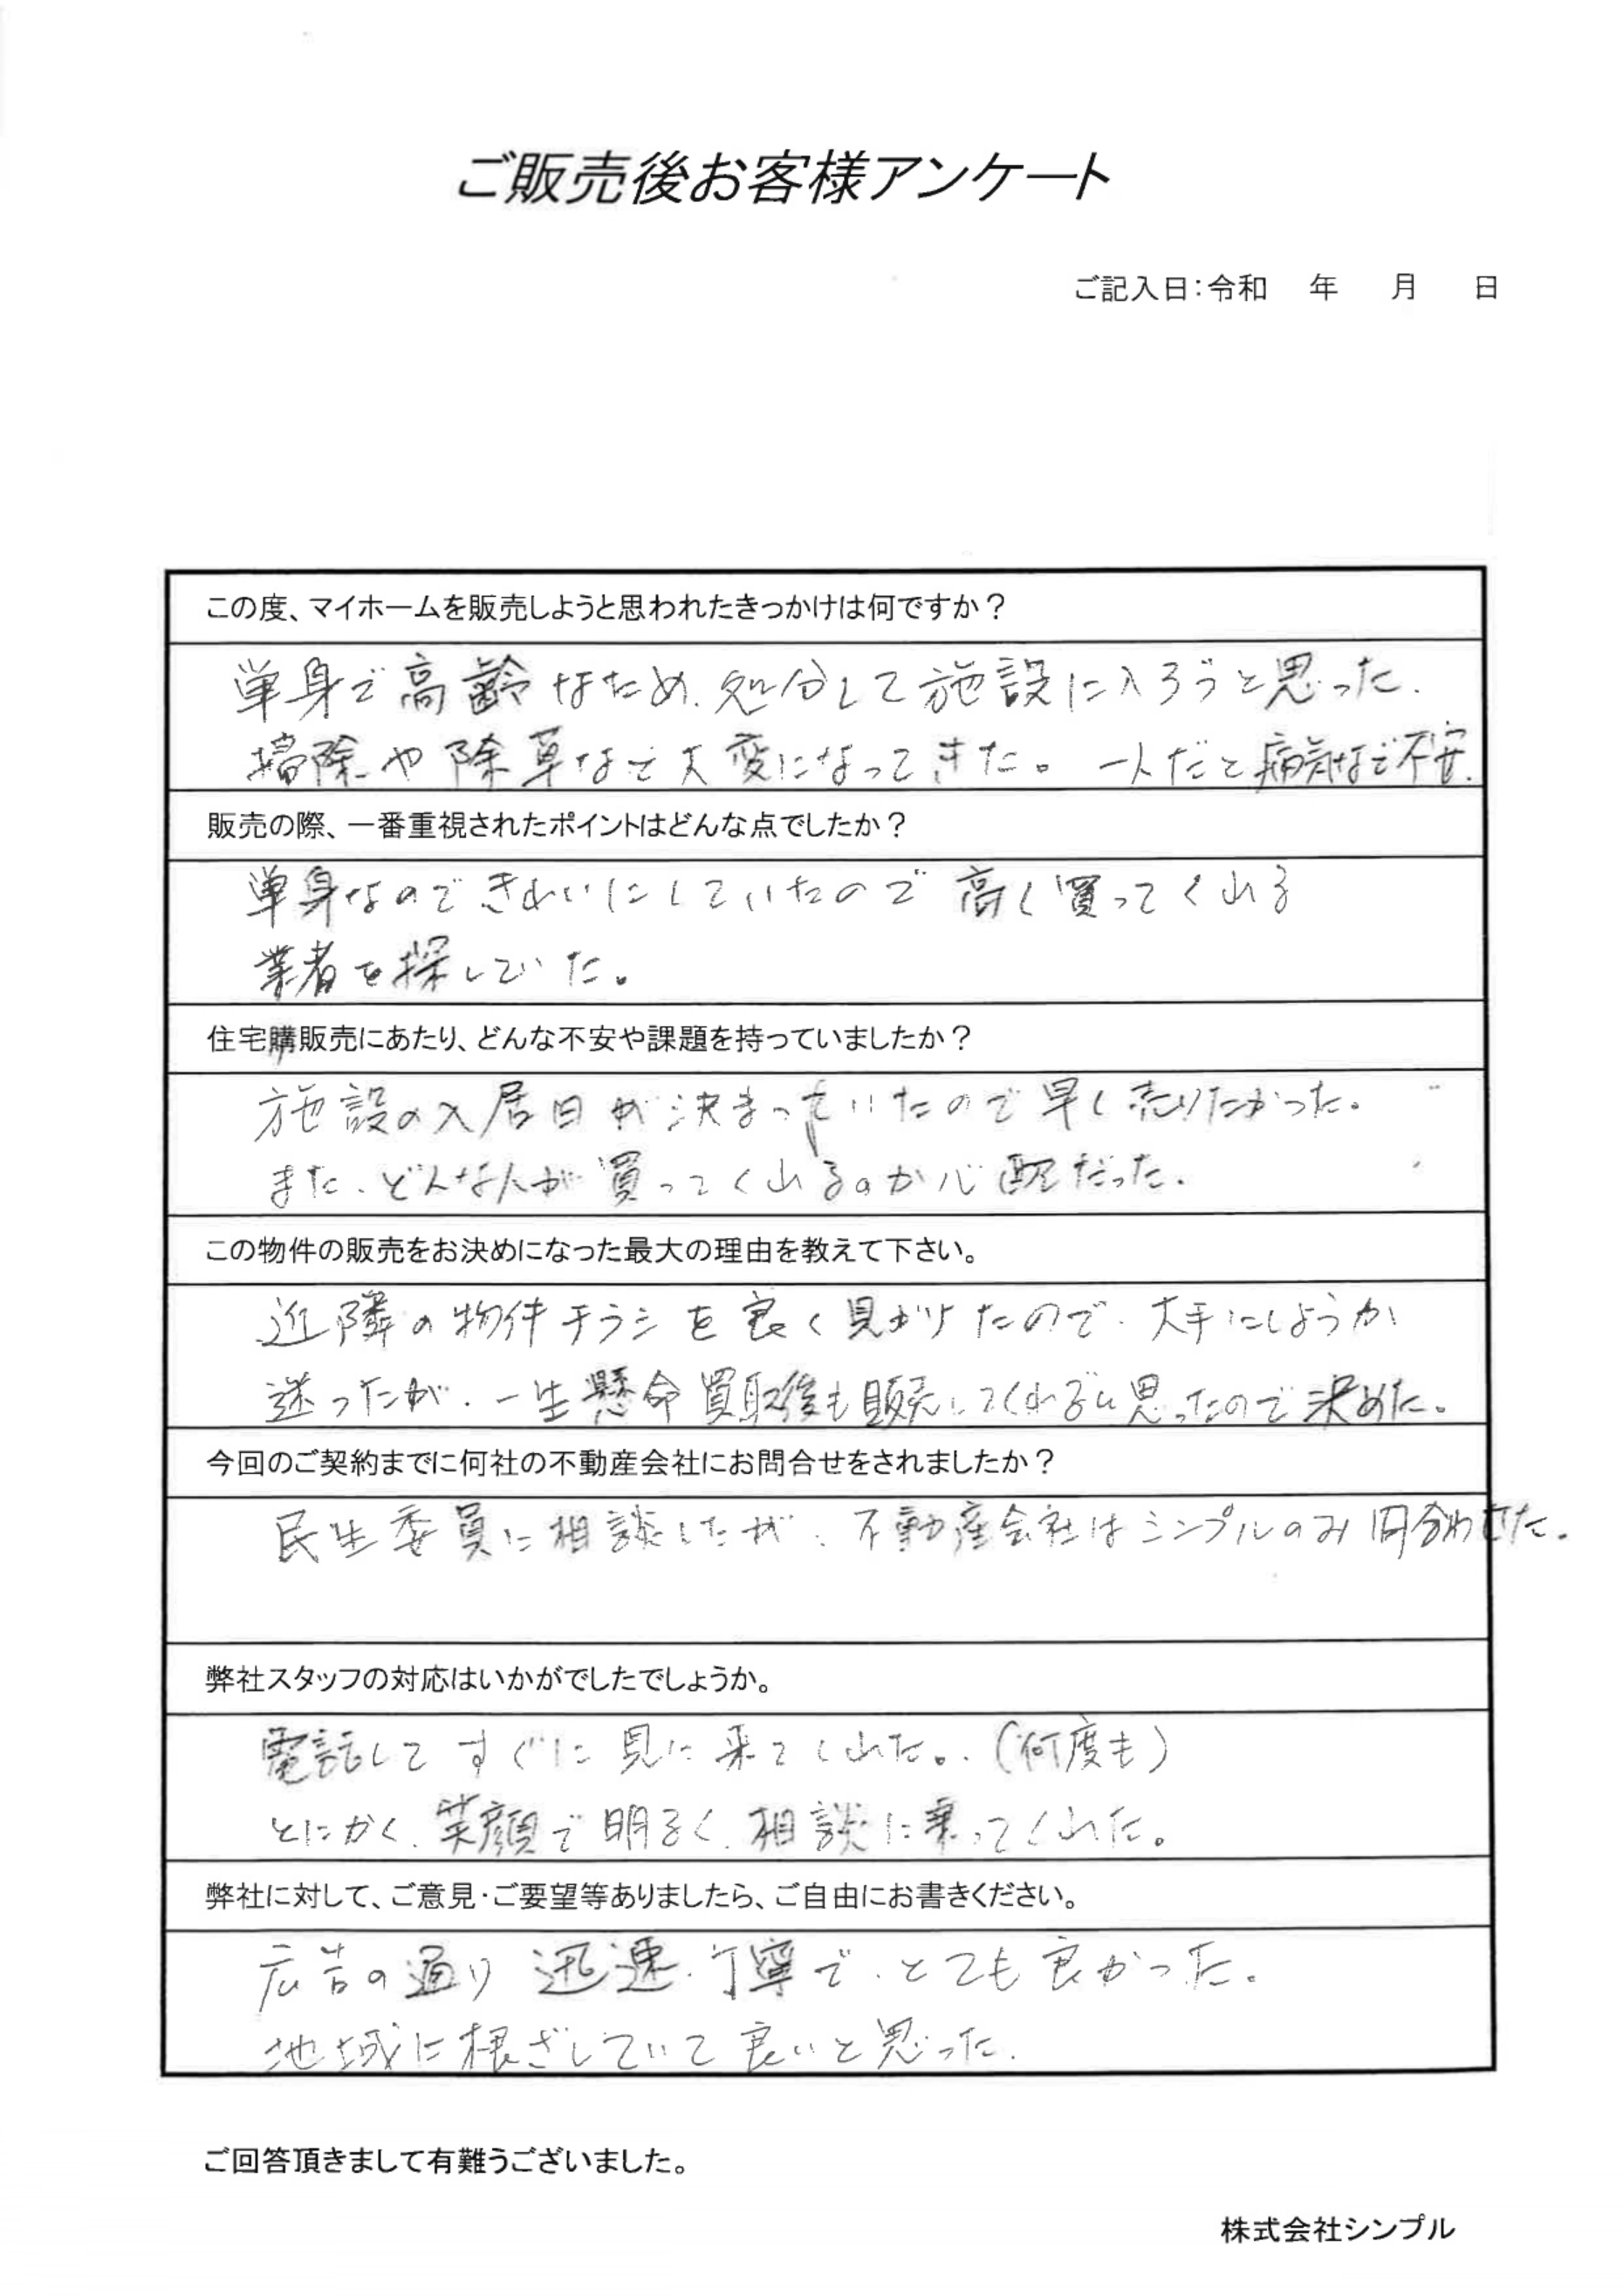 ご販売後お客様アンケート
ご記入日：令和　年　月　日
この度、マイホームを販売しようと思われたきっかけは何ですか？
単身で高齢なため、処分して施設に入ろうと思った。
掃除や除草など大変になってきた。一人だと病気など不安。
販売の際、一番重視されたポイントはどんな点でしたか？
単身なのできれいにしていたので高く買ってくれる
業者を探していた。
住宅購販売にあたり、どんな不安や課題を持っていましたか？
施設の入居日が決まっていたので早く売りたかった。
また、どんな人が買ってくれるのか心配だった。
この物件の販売をお決めになった最大の理由を教えて下さい。
近隣の物件チラシを良く見かけたので、大手にしようか
迷ったが、一生懸命買取後も販売してくれると思ったので決めた。
今回のご契約までに何社の不動産会社にお問合せをされましたか？
民生委員に相談したが、不動産会社はシンプルのみ問合わせた。
弊社スタッフの対応はいかがでしたでしょうか。
電話してすぐに見に来てくれた。（何度も）
とにかく、笑顔で明るく、相談に乗ってくれた。
弊社に対して、ご意見・ご要望等ありましたら、ご自由にお書きください。
広告の通り迅速、丁寧で、とても良かった。
地域に根ざしていて良いと思った。
ご回答頂きまして有難うございました。
株式会社シンプル